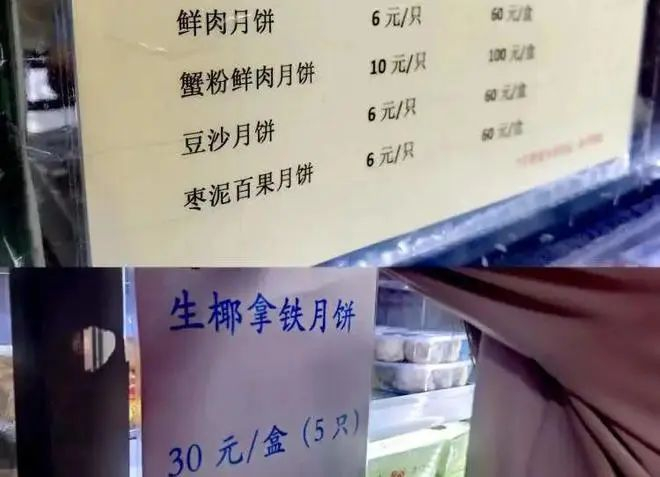 鲜肉月饼 6 元/只 60 元/盒
蟹粉鲜肉月饼 10 元/只 100 元/盒
豆沙月饼 6 元/只 60 元/盒
枣泥百果月饼 6 元/只 60 元/盒
生椰拿铁月饼
30 元/盒(5只)